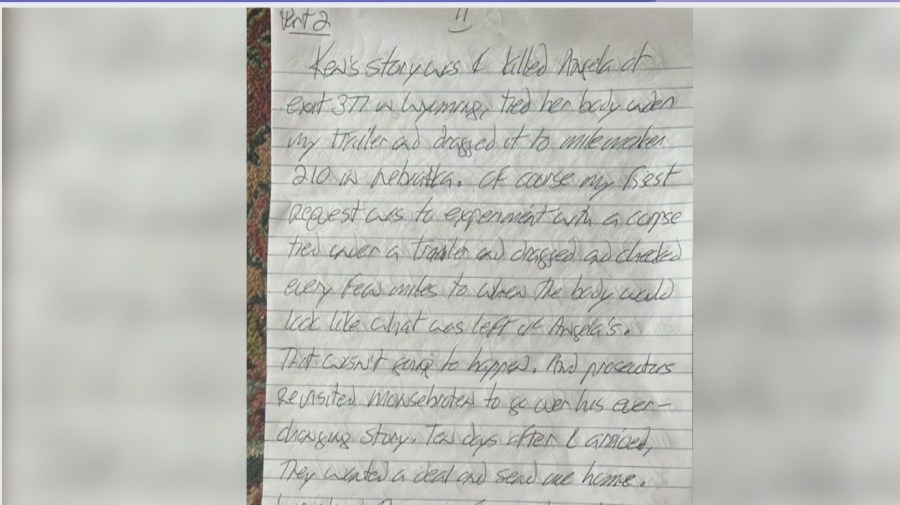 Part 2
11
Ken's story was I killed Angela at
exit 377 in Wyoming, tied her body under
my trailer and dragged it to mile marker
210 in Nebraska. Of course my first
request was to experiment with a corpse
tied under a trailer and dragged and checked
every few miles to when the body would
look like what was left of Angela's.
That wasn't going to happen. And prosecutors
revisited to go over his ever-
changing story. Ten days after I arrived,
They wanted a deal and send me home.